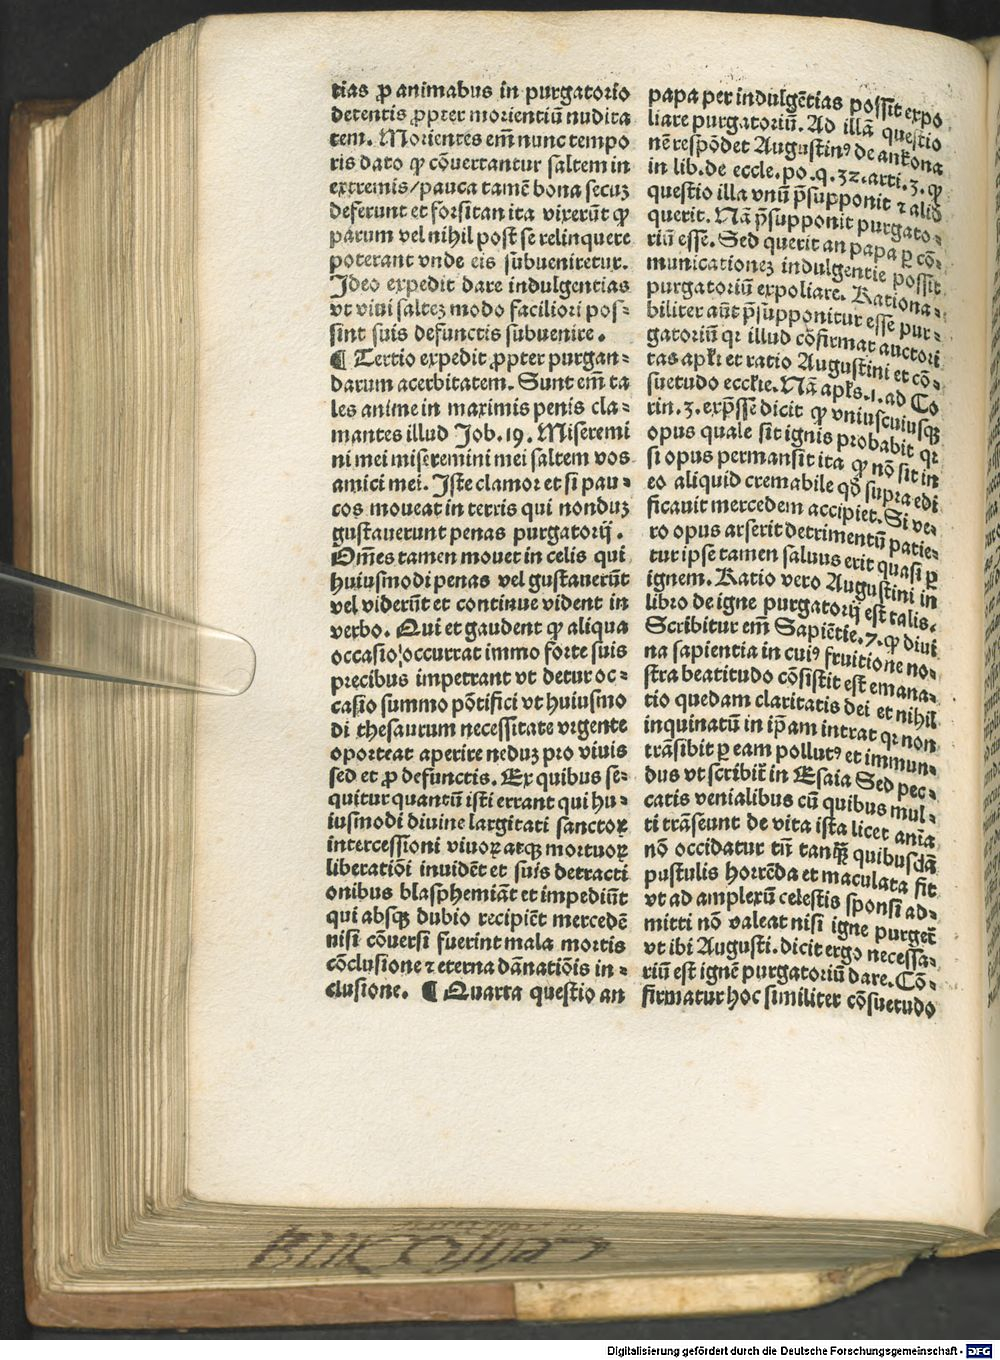 tias ꝓ animabus in purgatorio
detentis ꝓpter morientiū nudita
tem. Morientes em̄ nunc tempo
ris dato ꝙ cōuertantur saltem in
extremis/pauca tamē bona secuꝫ
deferunt et forsitan ita vixerūt ꝙ
parum vel nihil post se relinquere
poterant vnde eis subueniretur.
Ideo expedit dare indulgentias
vt viui salteꝫ modo faciliori pos⸗
sint suis defunctis subuenire.
¶ Tertio expedit ꝓpter purgan⸗
darum acerbitatem. Sunt em̄ ta
les anime in maximis penis cla⸗
mantes illud Job.19. Miseremi
ni mei miseremini mei saltem vos
amici mei. Iste clamor et si pau⸗
cos moueat in terris qui nonduꝫ
gustauerunt penas purgatorij.
Om̄es tamen mouet in celis qui
huiusmodi penas vel gustauerūt
vel viderūt et continue vident in
verbo. Qui et gaudent ꝙ aliqua
occasio occurrat immo forte suis
precibus impetrant vt detur oc⸗
casio summo pōtifici vt huiusmo
di thesaurum necessitate vrgente
oporteat aperire neduꝫ pro viuis
sed et ꝓ defunctis. Ex quibus se⸗
quitur quantū isti errant qui hu⸗
iusmodi diuine largitati sanctoꝝ
intercessioni viuoꝝ atqꝫ mortuoꝝ
liberatiōi inuidēt et suis detracti
onibus blasphemiāt et impediūt
qui absqꝫ dubio recipiēt mercedē
nisi cōuersi fuerint mala mortis
cōclusione ⁊ eterna dānatiōis in⸗
clusione. ¶ Quarta questio an
papa per indulgētias possit expo
liare purgatoriū. Ad illā questio
nē respōdet Augustinꝰ de ankona
in lib. de eccle. po. q. 32. arti. 3. ꝙ
questio illa vnū p̄supponit ⁊ aliđ
querit. Nā p̄supponit purgato⸗
riū esse. Sed querit an papa ꝑ cō⸗
municationeꝫ indulgentie possit
purgatoriū expoliare. Rationa⸗
biliter aūt p̄supponitur esse pur⸗
gatoriū qꝛ illud cōfirmat auctori
tas apl̄i et ratio Augustini et cō⸗
suetudo eccl̄ie. Nā apl̄s .1. ad Co
rin. 3. exp̄sse dicit ꝙ vniuscuiusqꝫ
opus quale sit ignis probabit qꝛ
si opus permansit ita ꝙ nō sit in
eo aliquid cremabile qđ supra edi
ficauit mercedem accipiet. Si ve⸗
ro opus arserit detrimentū patie⸗
tur ipse tamen saluus erit quasi ꝑ
ignem. Ratio vero Augustini in
libro de igne purgatorij est talis.
Scribitur em̄ Sapiētie. 7. ꝙ diui
na sapientia in cuiꝰ fruitione no⸗
stra beatitudo cōsistit est emana⸗
tio quedam claritatis dei et nihil
inquinatū in ip̄am intrat qꝛ non
trāsibit ꝑ eam pollutꝰ et immun⸗
dus vt scribit̄ in Esaia Sed pec⸗
catis venialibus cū quibus mul⸗
ti trāseunt de vita ista licet anīa
nō occidatur tn̄ tanqꝫ̄ quibusdā
pustulis horrēda et maculata fit
vt ad amplexū celestis sponsi ad⸗
mitti nō valeat nisi igne purget̄
vt ibi Augusti. dicit ergo necessa⸗
riū est ignē purgatoriū dare. Cō⸗
firmatur hoc similiter cōsuetudo
Digitalisierung gefördert durch die Deutsche Forschungsgemeinschaft - DFG